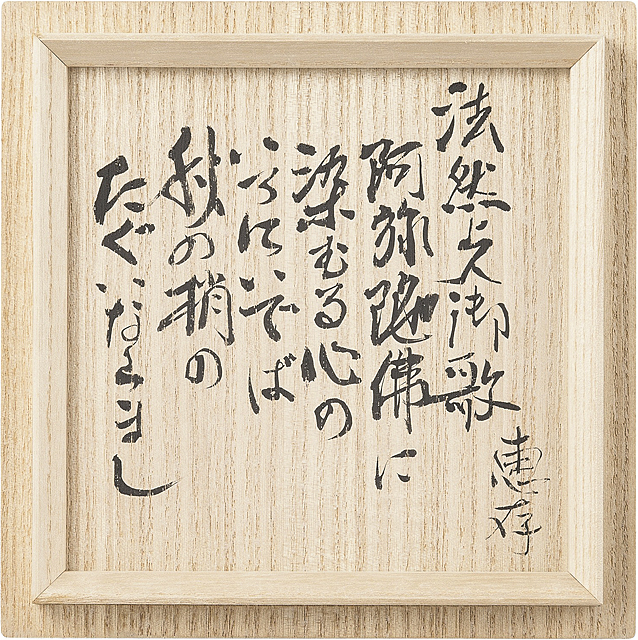 法然上人御歌
惠存
阿弥陀佛に
染むる心の
いろにいでば
秋の梢の
たぐいならまし